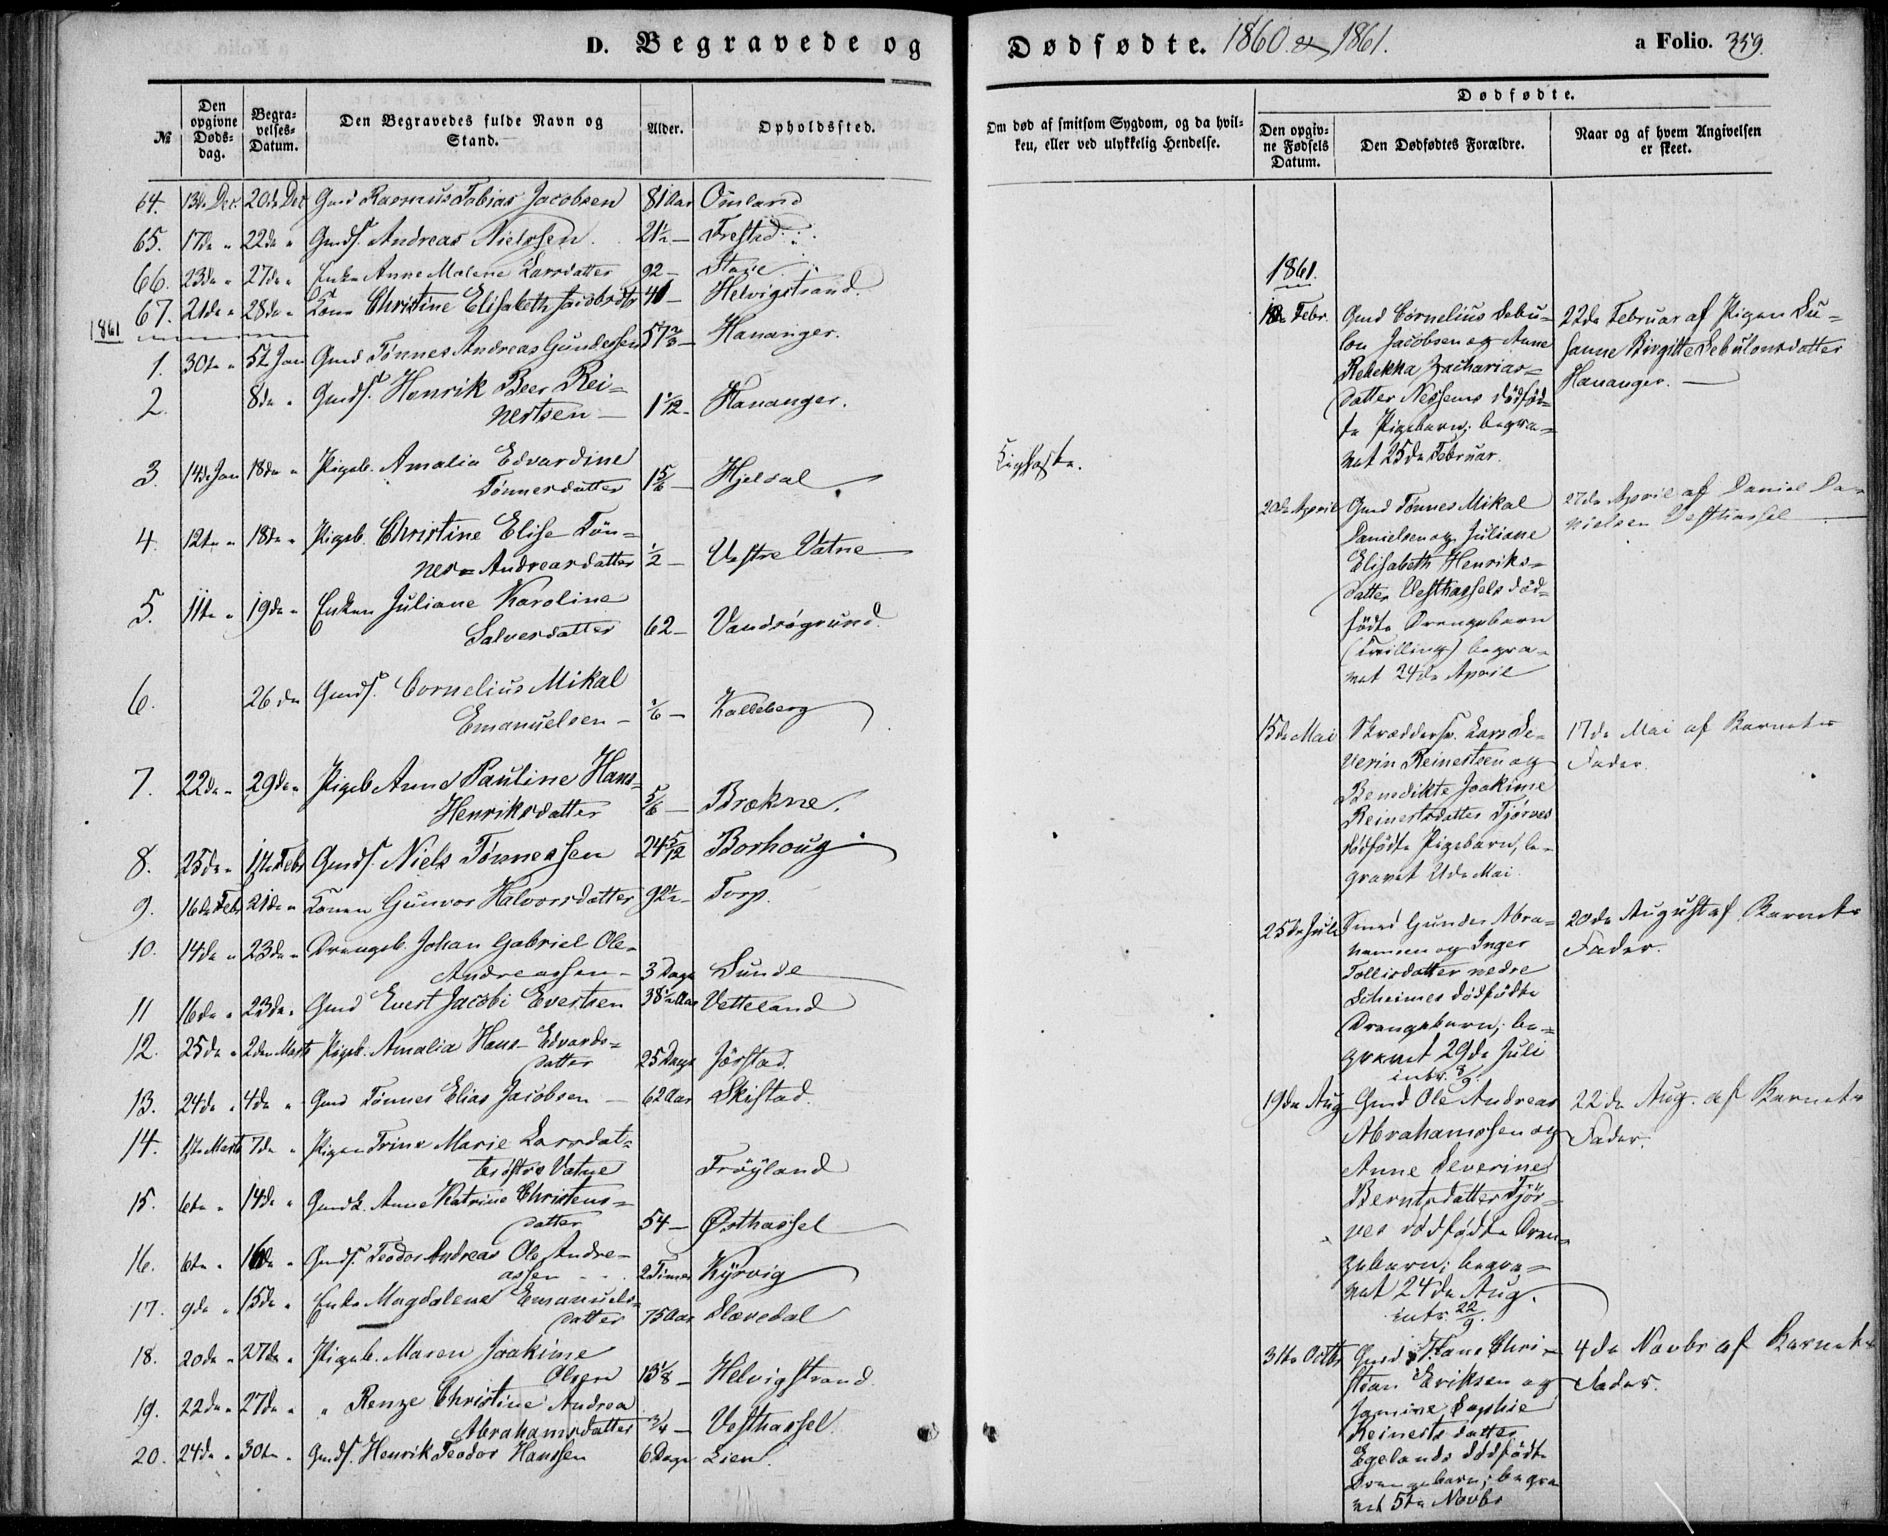 D. Begravede og Dødfødte. 1860 & 1861. a Folio. 359.
№
Den opgivne Døds-dag.
Begra-velses-Datum.
Den Begravedes fulde Navn og Stand.
Alder.
Opholdssted.
Om død af smitsom Sygdom, og da hvil-ken, eller ved ulykkelig Hendelse.
Dødfødte.
Den opgiv-ne Fødsels Datum.
Den Dødfødtes Forældre.
Naar og af hvem Angivelsen er skeet.
64. 13de Dec. 20de Dec Gmd Rasmus Tobias Jacobsen 81 Aar Omland
65. 17de " 22de " Gmds. Andreas Nielssen. 2½ — Frestad
66. 23de " 27de " Enke Anne Malene Larsdatter 92 — Stave
67. 21de " 28de " Kone Christine Elisabeth Jacobsdtr 41 — Helvigstrand.
1861
1. 30te " 5te Jan Gmd Tønnes Andreas Gundersen 57⅔ — Hananger.
2. 8de " Gmds. Henrik Beer Rei=
nertsen — 1 1/12 — Hananger.
3. 14de Jan 18de " Pigeb. Amalia Edvardine
Tønnesdatter 1⅚ — Hjelsal Kighoste.
4. 12te " 18de " Pigeb. Christine Elise Tøn=
nes=Andreasdatter ½ — Vestre Vatne
5. 11te " 19de " Enken Juliane Karoline
Salvesdatter 62 — Vandrøgrund.
6. 26de Gmds. Cornelius Mikal
Emanuelsen — ⅙ — Kalleberg
7. 22de " 29de " Pigeb Anne Pauline Hans=
Henriksdatter ⅚ — Brekne.
8. 25de " 1ste Febr Gmds. Niels Tønnessen 24 5/12 Borhoug
9. 16de Febr 21de " Konen Gunvor Halvorsdatter 92½ — Torp.
10. 14de " 23de " Drengeb. Johan Gabriel Ole=
Andreassen — 3 Dage Sunde
11 16de " 23de " Gmd Evert Jacobi Evertsen 38½ Aar Vetteland
12. 25de " 2den Marts Pigeb. Amalia Hans=Edvards=
datter 25 Dage Jørstad.
13. 24de " 4de " Gmd Tønnes Elias Jacobsen — 62 Aar Skistad.
14. 1ste Marts 7de " Pigen Trine Marie Larsdat=
ter østre Vatne Frøyland
15. 6te " 14de " Gmdk. Anne Katrine Christens=
datter 54 — Østhassel
16. 6te " 16de " Gmds. Teodor Andreas Ole Andre=
assen 2 Timer Kyrvig
17. 9de " 15de " Enke Magdalene Emanuels=
datter 75 Aar Slevedal
18. 20de " 27de " Pigeb. Maren Joakime
Olsen 13⅛ — Helvigstrand
19. 22de " 27de " " Renze Christine Andrea
Abrahamsdatter ¾ — Vesthassel.
20. 24de " 30te " Gmds. Henrik Teodor Hanssen 6 Dage Lien.
1861.
18de Febr. Gmd Cornelius Sebu=
lon Jacobsen og Anne
Rebekka Zacharias=
datter Nessems dødfød=
te Pigebarn; begra=
vet 25de Februar.
22de Februar af Pigen Su=
sanne Birgitte Sebulonsdatter
Hananger. —
20de April Gmd Tønnes Mikal
Danielsen og Juliane
Elisabeth Henriks=
datter Vesthassels død=
fødte Drengebarn
(Tvilling) begra=
vet 24de April
27de April af Daniel Da=
nielsen Vesthassel
15de Mai Skræddersv. Lars Se=
verin Reinertsen og
Benedikte Joakime
Reinertsdatter Tjørves
dødfødte Pigebarn, be=
gravet 21de Mai
17de Mai af Barnets
Fader.
25de Juli Smed Gunder Abra=
hamsen og Inger
Tollisdatter nedre
Scheimes dødfødte
Drengebarn; be=
gravet 29de Juli
intr. 8/9.
20de August af Barnets
Fader.
19de Aug Gmd Ole Andreas
Abrahamssen og
Anne Severine
Berntsdatter Tjør=
ves dødfødte Dren=
gebarn; begra=
vet 24de Aug.
intr. 22/9.
22de Aug. af Barnets
Fader.
31te Octbr Gmd Hans Chri=
stian Eriksen og
Jamine Sophie
Reinertsdatter
Egelands dødfødte
Drengebarn; begra
vet 5te Novbr
4de Novbr af Barnets
Fader.